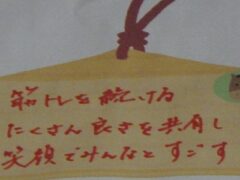 筋トレを続ける
たくさん良さを共有し
笑顔でみんなとすごす